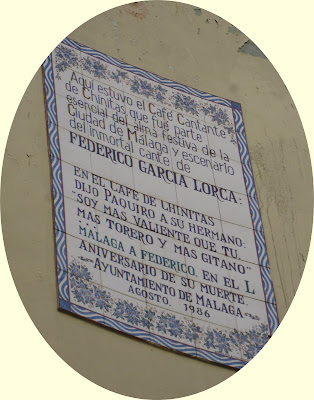 Aqui estuvo el Café Cantante
de Chinitas que fue parte
esencial del alma festiva de la
Ciudad de Malaga y escenario
del inmortal cante de
FEDERICO GARCIA LORCA:
EN EL CAFE DE CHINITAS
DIJO PAQUIRO A SU HERMANO:
"SOY MAS VALIENTE QUE TU,
MAS TORERO Y MAS GITANO"
MALAGA A FEDERICO, EN EL L
ANIVERSARIO DE SU MUERTE
AYUNTAMIENTO DE MALAGA
AGOSTO, 1986